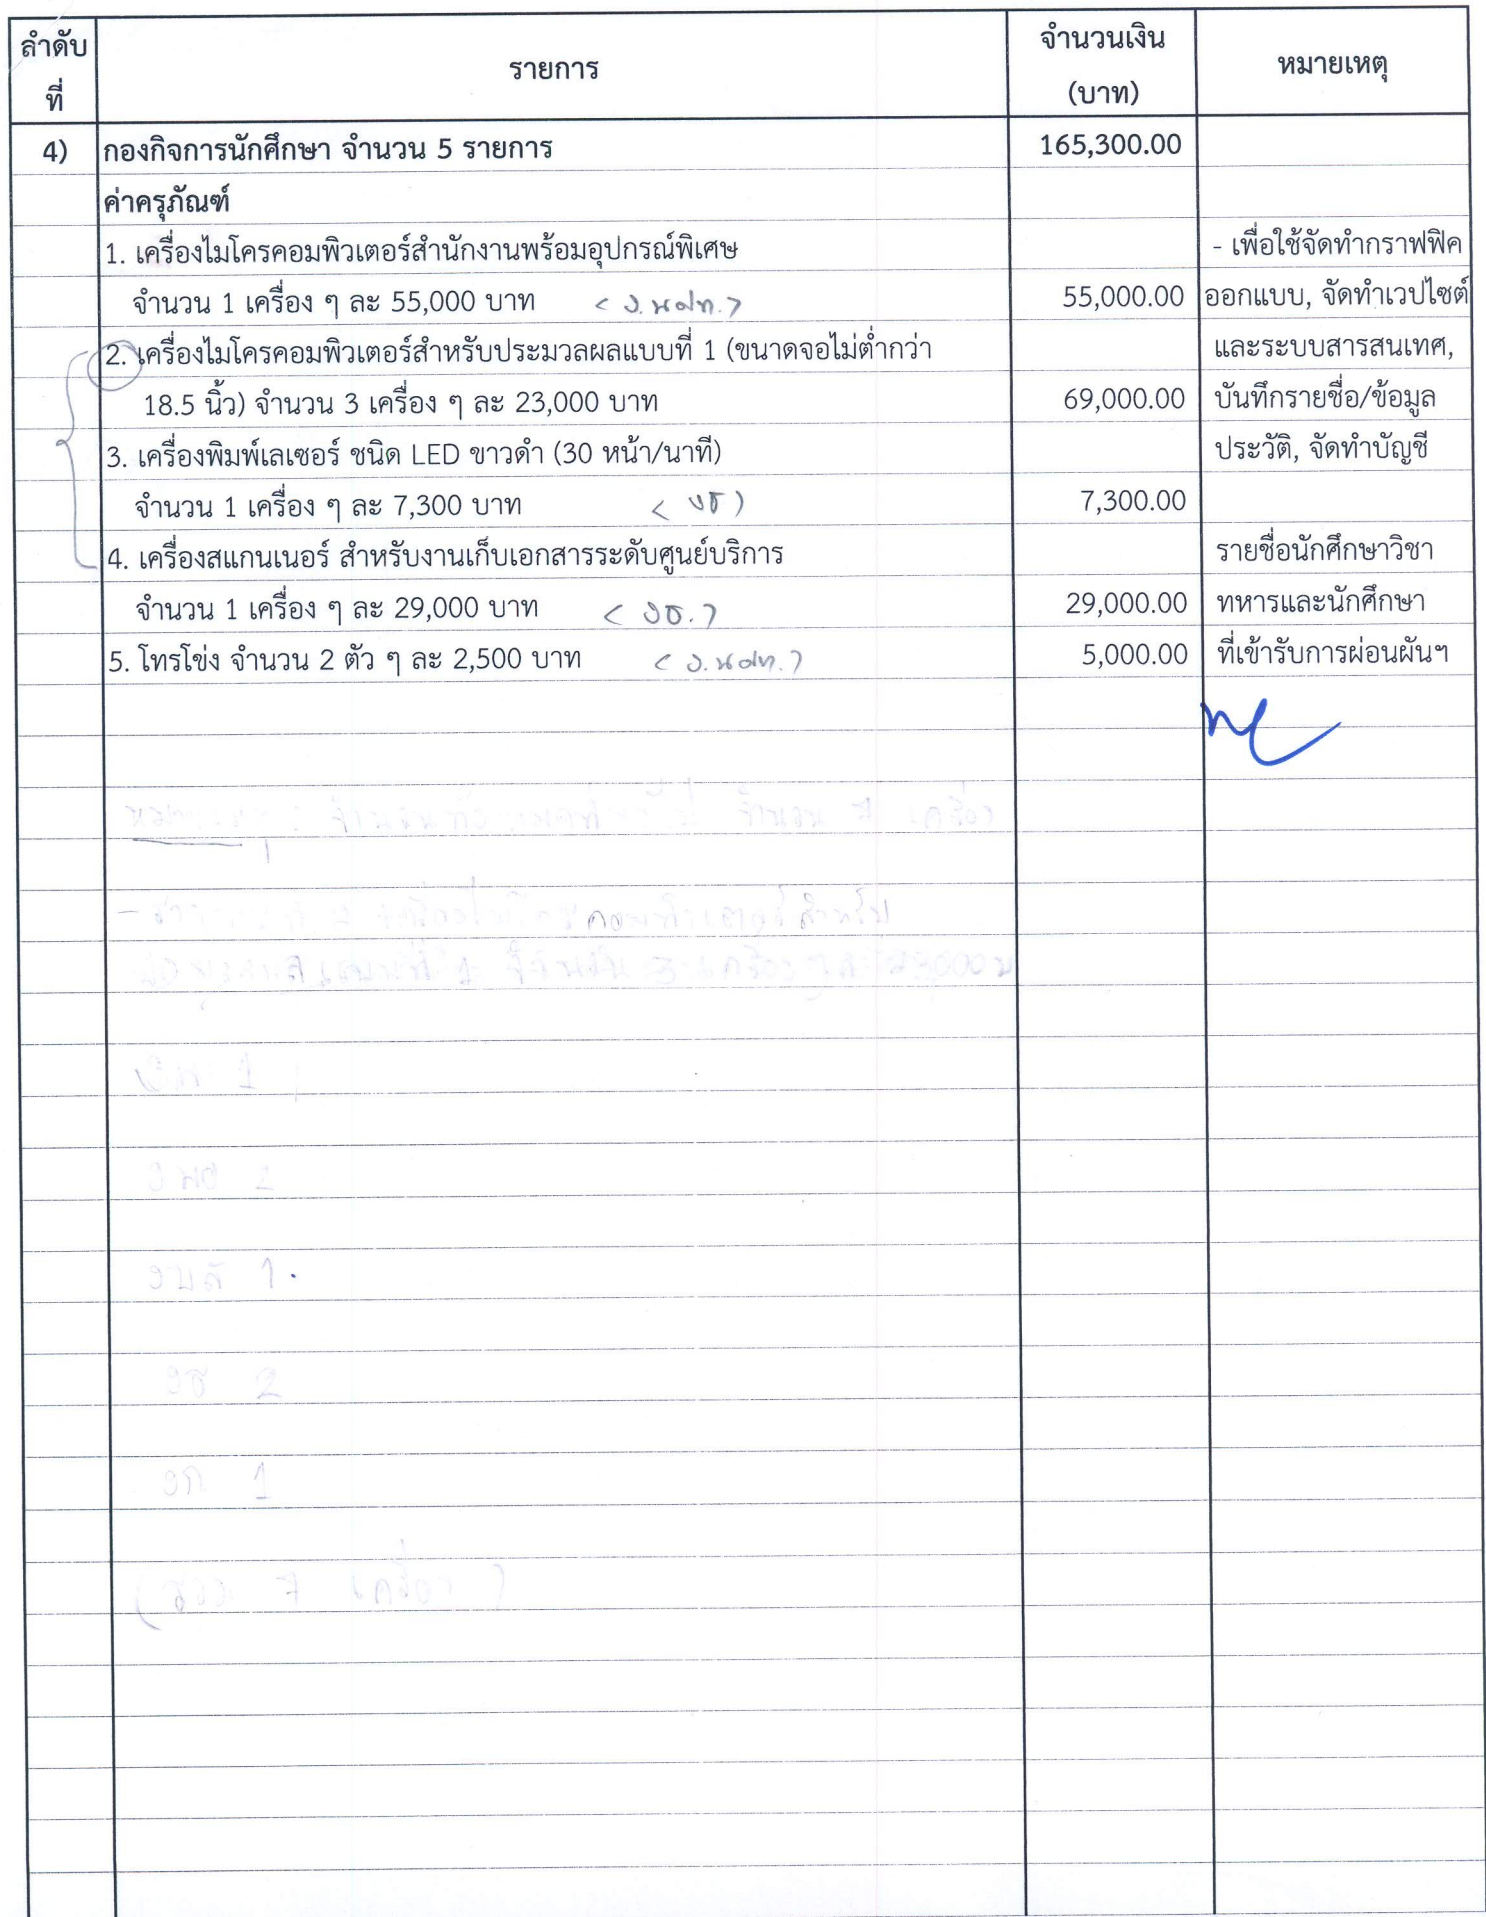 ลำดับ
ที่
รายการ
จำนวนเงิน
(บาท)
หมายเหตุ
4) กองกิจการนักศึกษา จำนวน 5 รายการ 165,300.00
ค่าครุภัณฑ์
1. เครื่องไมโครคอมพิวเตอร์สำนักงานพร้อมอุปกรณ์พิเศษ - เพื่อใช้จัดทำกราฟฟิค
จำนวน 1 เครื่อง ๆ ละ 55,000 บาท 55,000.00 ออกแบบ, จัดทำเวปไซต์
2. เครื่องไมโครคอมพิวเตอร์สำหรับประมวลผลแบบที่ 1 (ขนาดจอไม่ต่ำกว่า และระบบสารสนเทศ,
18.5 นิ้ว) จำนวน 3 เครื่อง ๆ ละ 23,000 บาท 69,000.00 บันทึกรายชื่อ/ข้อมูล
3. เครื่องพิมพ์เลเซอร์ ชนิด LED ขาวดำ (30 หน้า/นาที) ประวัติ, จัดทำบัญชี
จำนวน 1 เครื่อง ๆ ละ 7,300 บาท (งธ) 7,300.00
4. เครื่องสแกนเนอร์ สำหรับงานเก็บเอกสารระดับศูนย์บริการ รายชื่อนักศึกษาวิชา
จำนวน 1 เครื่อง ๆ ละ 29,000 บาท (งธ.) 29,000.00 ทหารและนักศึกษา
5. โทรโข่ง จำนวน 2 ตัว ๆ ละ 2,500 บาท 5,000.00 ที่เข้ารับการผ่อนผันฯ
จำนวน 7 เครื่อง
งบส 1.
งธ 2
งก 1
(รวม 7 เครื่อง)